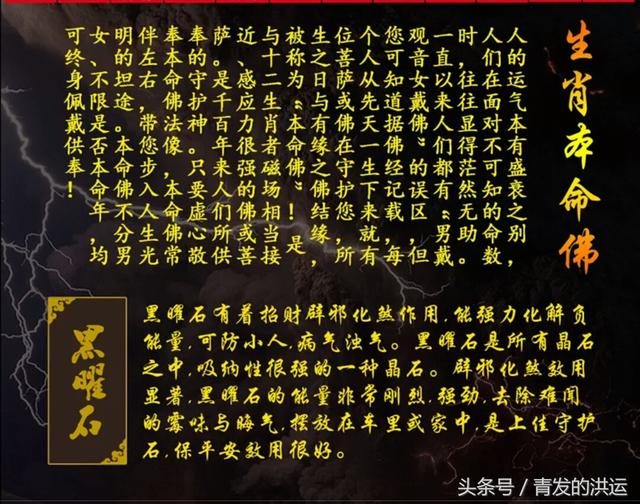 生肖本命佛
人的运气本有盛衰之别，
人们在面对不可知的命数，
时，往往显得茫然无助。
一直以来人们都有“男戴
观音女戴佛”的误区，但
您可知道据佛经记载，每
个人从先天一生下来就有
位善萨或佛在守护您，所
生之日与有缘之佛结缘，
被称为“本命佛”！是
与十二生肖者磁场相当接
近、感应力很强的佛或菩
萨。是千百年来人们所供
奉的守护神。只要虚心敬
奉本命佛法像，本命佛常
伴左右，带您步入人生光
明的坦途。本命佛不分男
女、不限是否本命年，均
可终身佩戴供奉，
黑曜石
黑曜石有着招财辟邪化煞作用，能强力化解负
能量，可防小人，病气浊气。黑曜石是所有晶石
之中，吸纳性很强的一种晶石。辟邪化煞效用
显著，黑曜石的能量非常刚烈，强劲，去除难闻
的霉味与晦气，摆放在车里或家中，是上佳守护
石，保平安效用很好。
头条号／青发的洪运